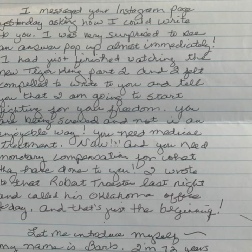 I messaged your Instagram page
yesterday asking how I could write
to you. I was very surprised to see
an answer pop up almost immediately!
I had just finished watching the
new Tiger King part 2 and I felt
compelled to write to you and tell
you that I am going to start
fighting for your freedom. You
are being screwed and not in an
enjoyable way! You need medical
treatment. Now!! And you need
monetary compensation for what
they have done to you. I wrote
to that Robat Thaisten last night
and called his Oklahoma office
today. And that's just the beginning!
Let me introduce myself ~
my name is Barb. I'm 72 years